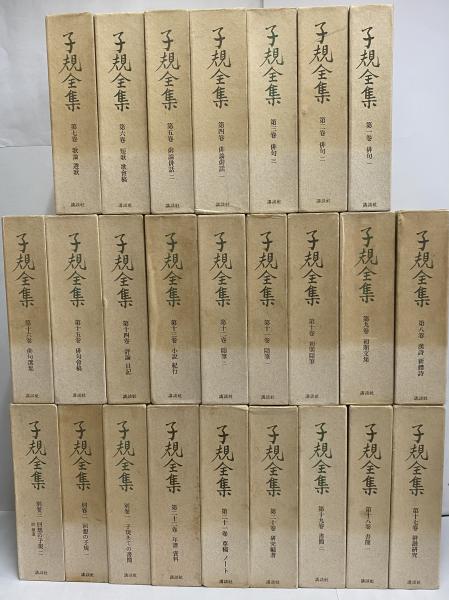 子規全集 第一巻 俳句一 講談社
子規全集 第二巻 俳句二 講談社
子規全集 第三巻 俳句三 講談社
子規全集 第四巻 俳論俳話一 講談社
子規全集 第五巻 俳論俳話二 講談社
子規全集 第六巻 短歌 歌會稿 講談社
子規全集 第七巻 歌論 選歌 講談社
子規全集 第八巻 漢詩 新體詩 講談社
子規全集 第九巻 初期文集 講談社
子規全集 第十巻 初期隨筆 講談社
子規全集 第十一巻 隨筆一 講談社
子規全集 第十二巻 隨筆二 講談社
子規全集 第十三巻 小説 紀行 講談社
子規全集 第十四巻 評論 日記 講談社
子規全集 第十五巻 俳句會稿 講談社
子規全集 第十六巻 俳句選集 講談社
子規全集 第十七巻 俳諧研究 講談社
子規全集 第十八巻 書簡一 講談社
子規全集 第十九巻 書簡二 講談社
子規全集 第二十巻 研究編著 講談社
子規全集 第二十一巻 草稿 ノート 講談社
子規全集 第二十二巻 年譜 資料 講談社
子規全集 別巻一 子規あての書簡 講談社
子規全集 別巻二 回想の子規一 講談社
子規全集 別巻三 回想の子規二 講談社